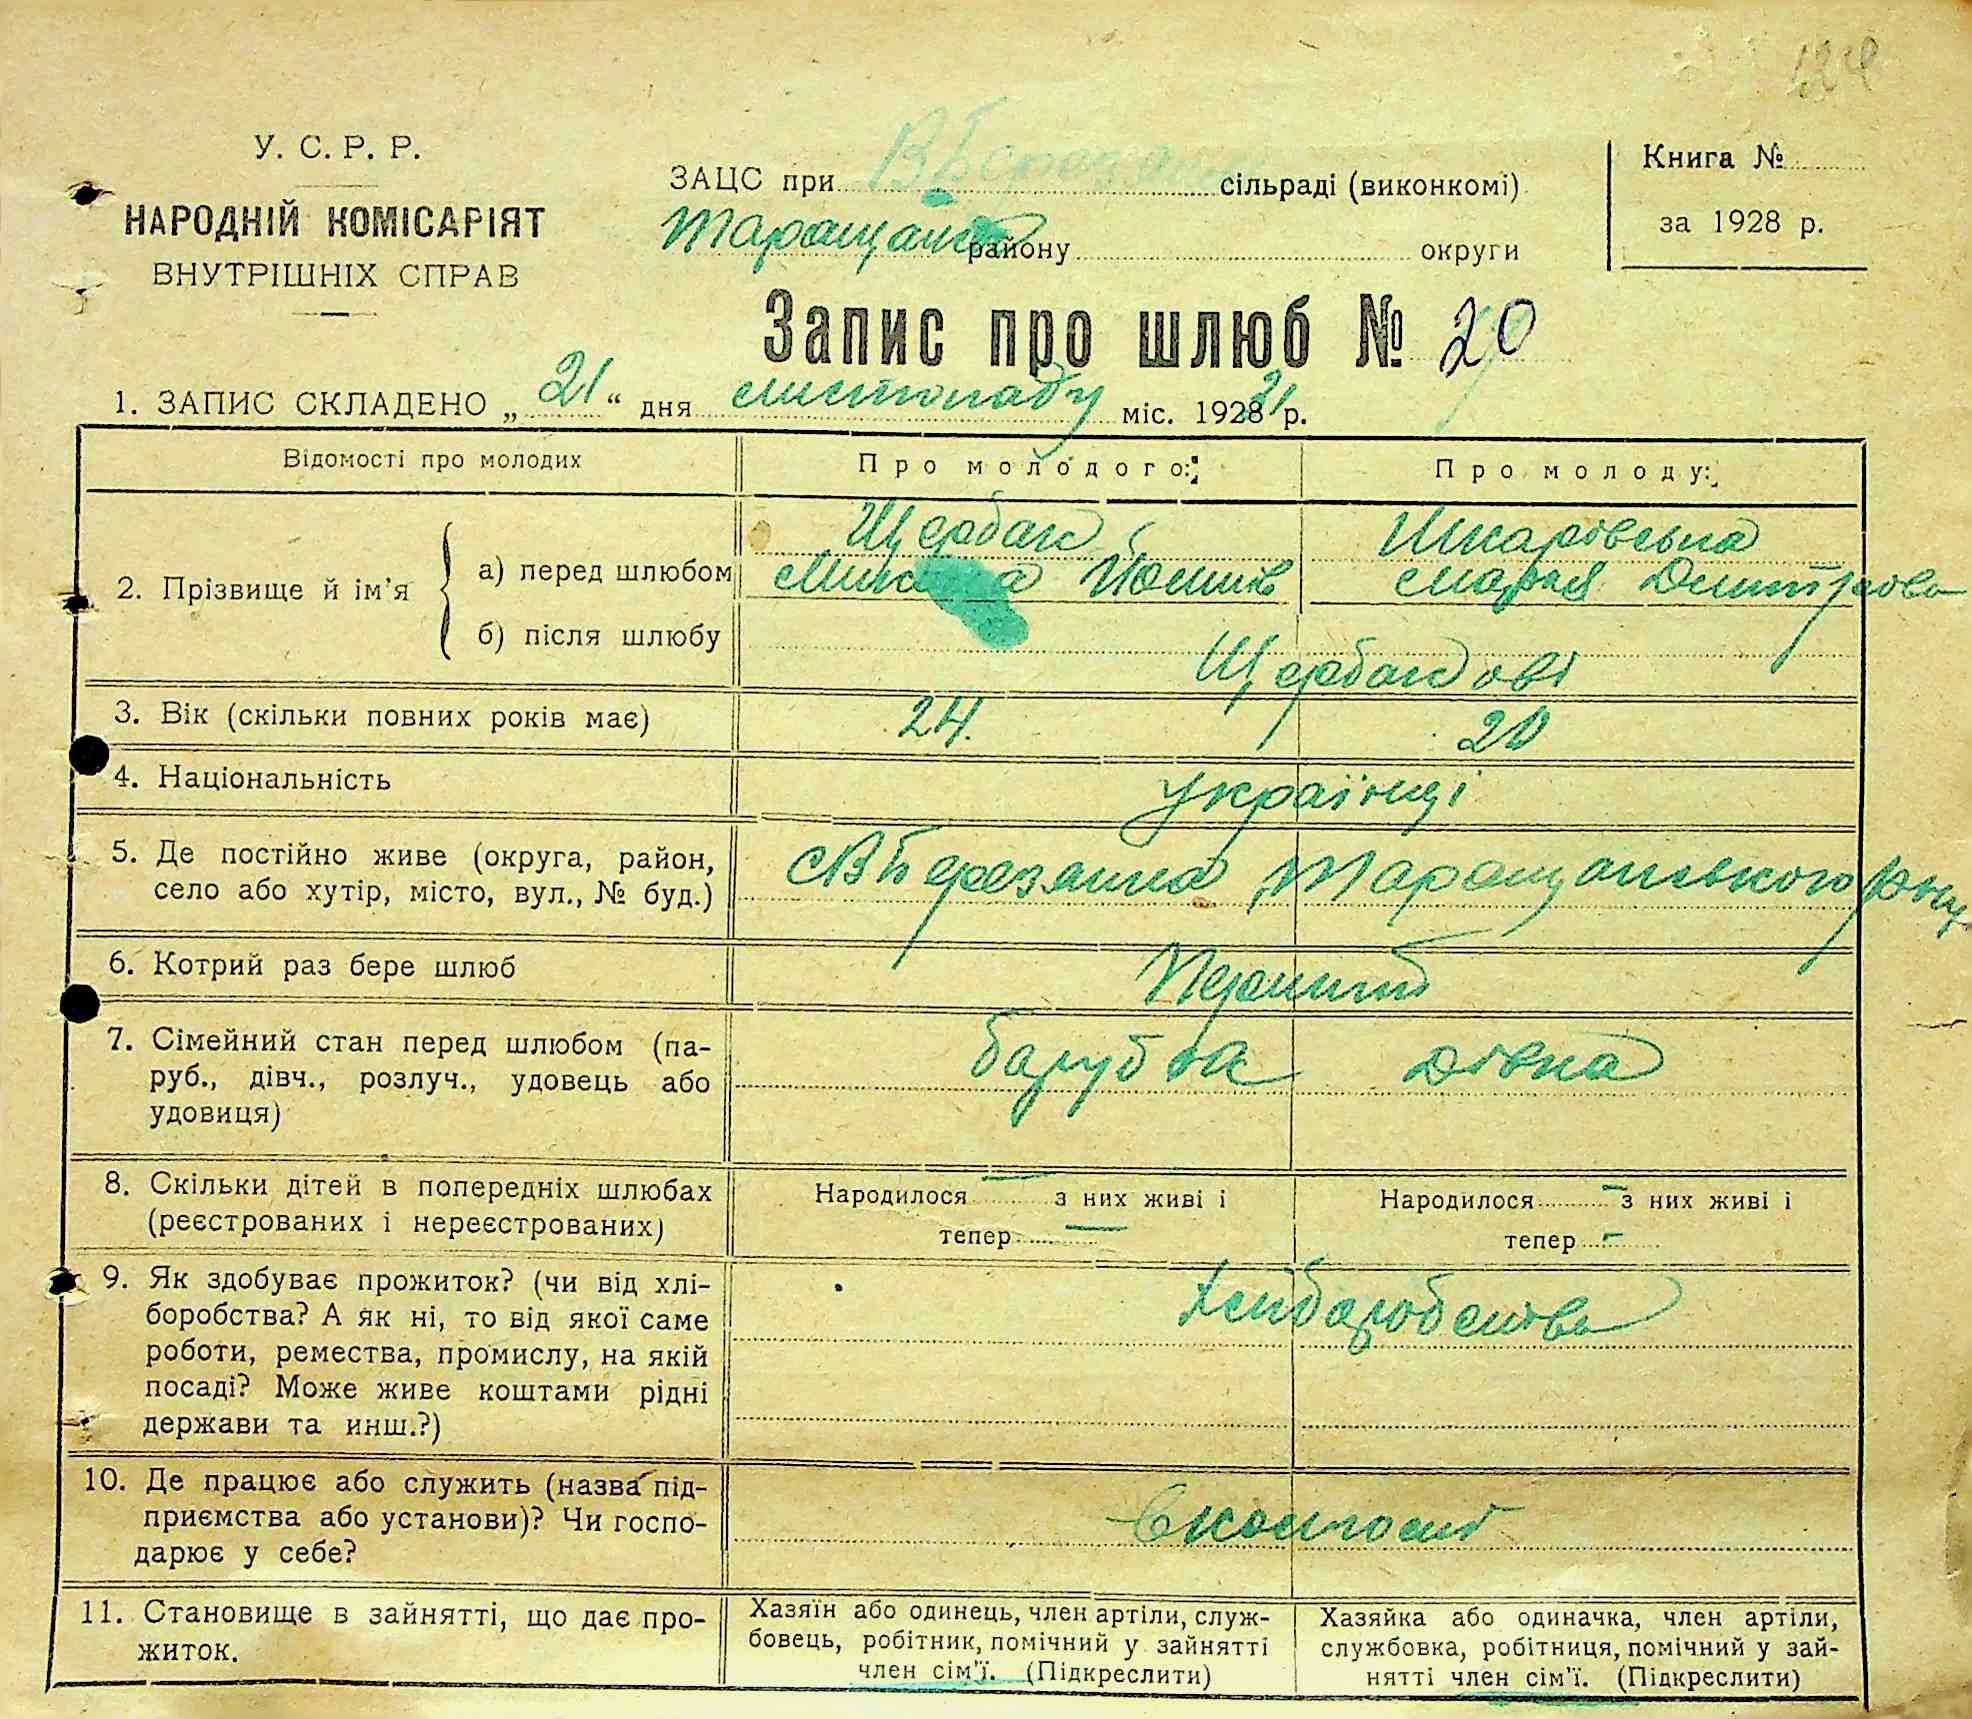 У. С. Р. Р.
НАРОДНІЙ КОМІСАРІЯТ
ВНУТРІШНІХ СПРАВ
ЗАЦС при В Березанк сільраді (виконкомі)
Таращанс району округи
Книга №
за 1928 р.
Запис про шлюб № 20
1. ЗАПИС СКЛАДЕНО „ 21 “ дня листопаду міс. 1928 р.
Відомості про молодих
Про молодого:
Про молоду:
2. Прізвище й ім'я
а) перед шлюбом
Щербак
Шкарівська
Микола Йосипів
Марія Дмитрова
б) після шлюбу
Щербакові
3. Вік (скільки повних років має)
24.
20
4. Національність
українці
5. Де постійно живе (округа, район,
село або хутір, місто, вул., № буд.)
с В Березанка Таращанського р-ну
6. Котрий раз бере шлюб
Перший
7. Сімейний стан перед шлюбом (па-
руб., дівч., розлуч., удовець або
удовиця)
барубок
дівка
8. Скільки дітей в попередніх шлюбах
(реєстрованих і нереєстрованих)
Народилося — з них живі і
тепер —
Народилося — з них живі і
тепер —
9. Як здобуває прожиток? (чи від хлі-
боробства? А як ні, то від якої саме
роботи, ремества, промислу, на якій
посаді? Може живе коштами рідні
держави та инш.?)
10. Де працює або служить (назва під-
приємства або установи)? Чи госпо-
дарює у себе?
11. Становище в зайнятті, що дає про-
житок.
Хазяїн або одинець, член артіли, служ-
бовець, робітник, помічний у зайнятті
член сім'ї. (Підкреслити)
Хазяйка або одиначка, член артіли,
службовка, робітниця, помічний у зай-
нятті член сім'ї. (Підкреслити)